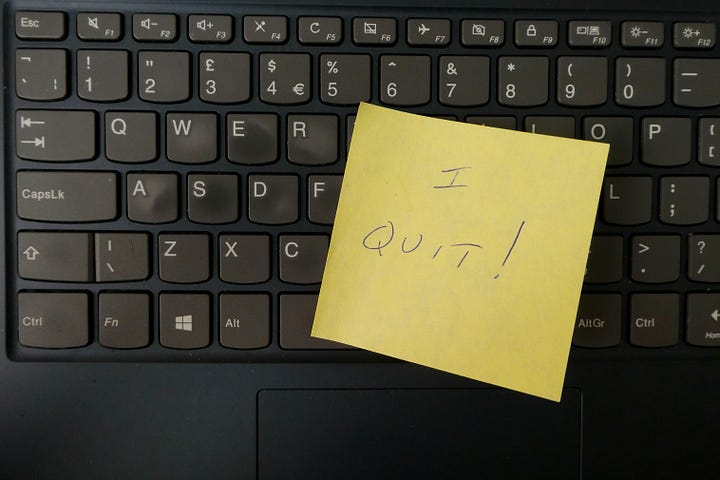 Esc F1 F2 F3 F4 F5 F6 F7 F8 F9 F10 F11 F12
¬ ` ¦ ! 1 " 2 £ 3 $ 4 € % 5 ^ 6 & 7 * 8 ( 9 ) 0 —
Q W E R O P
CapsLk A S D F L : ;
| \ Z X C > . ? /
Ctrl Fn Alt AltGr Ctrl
I
QUIT!